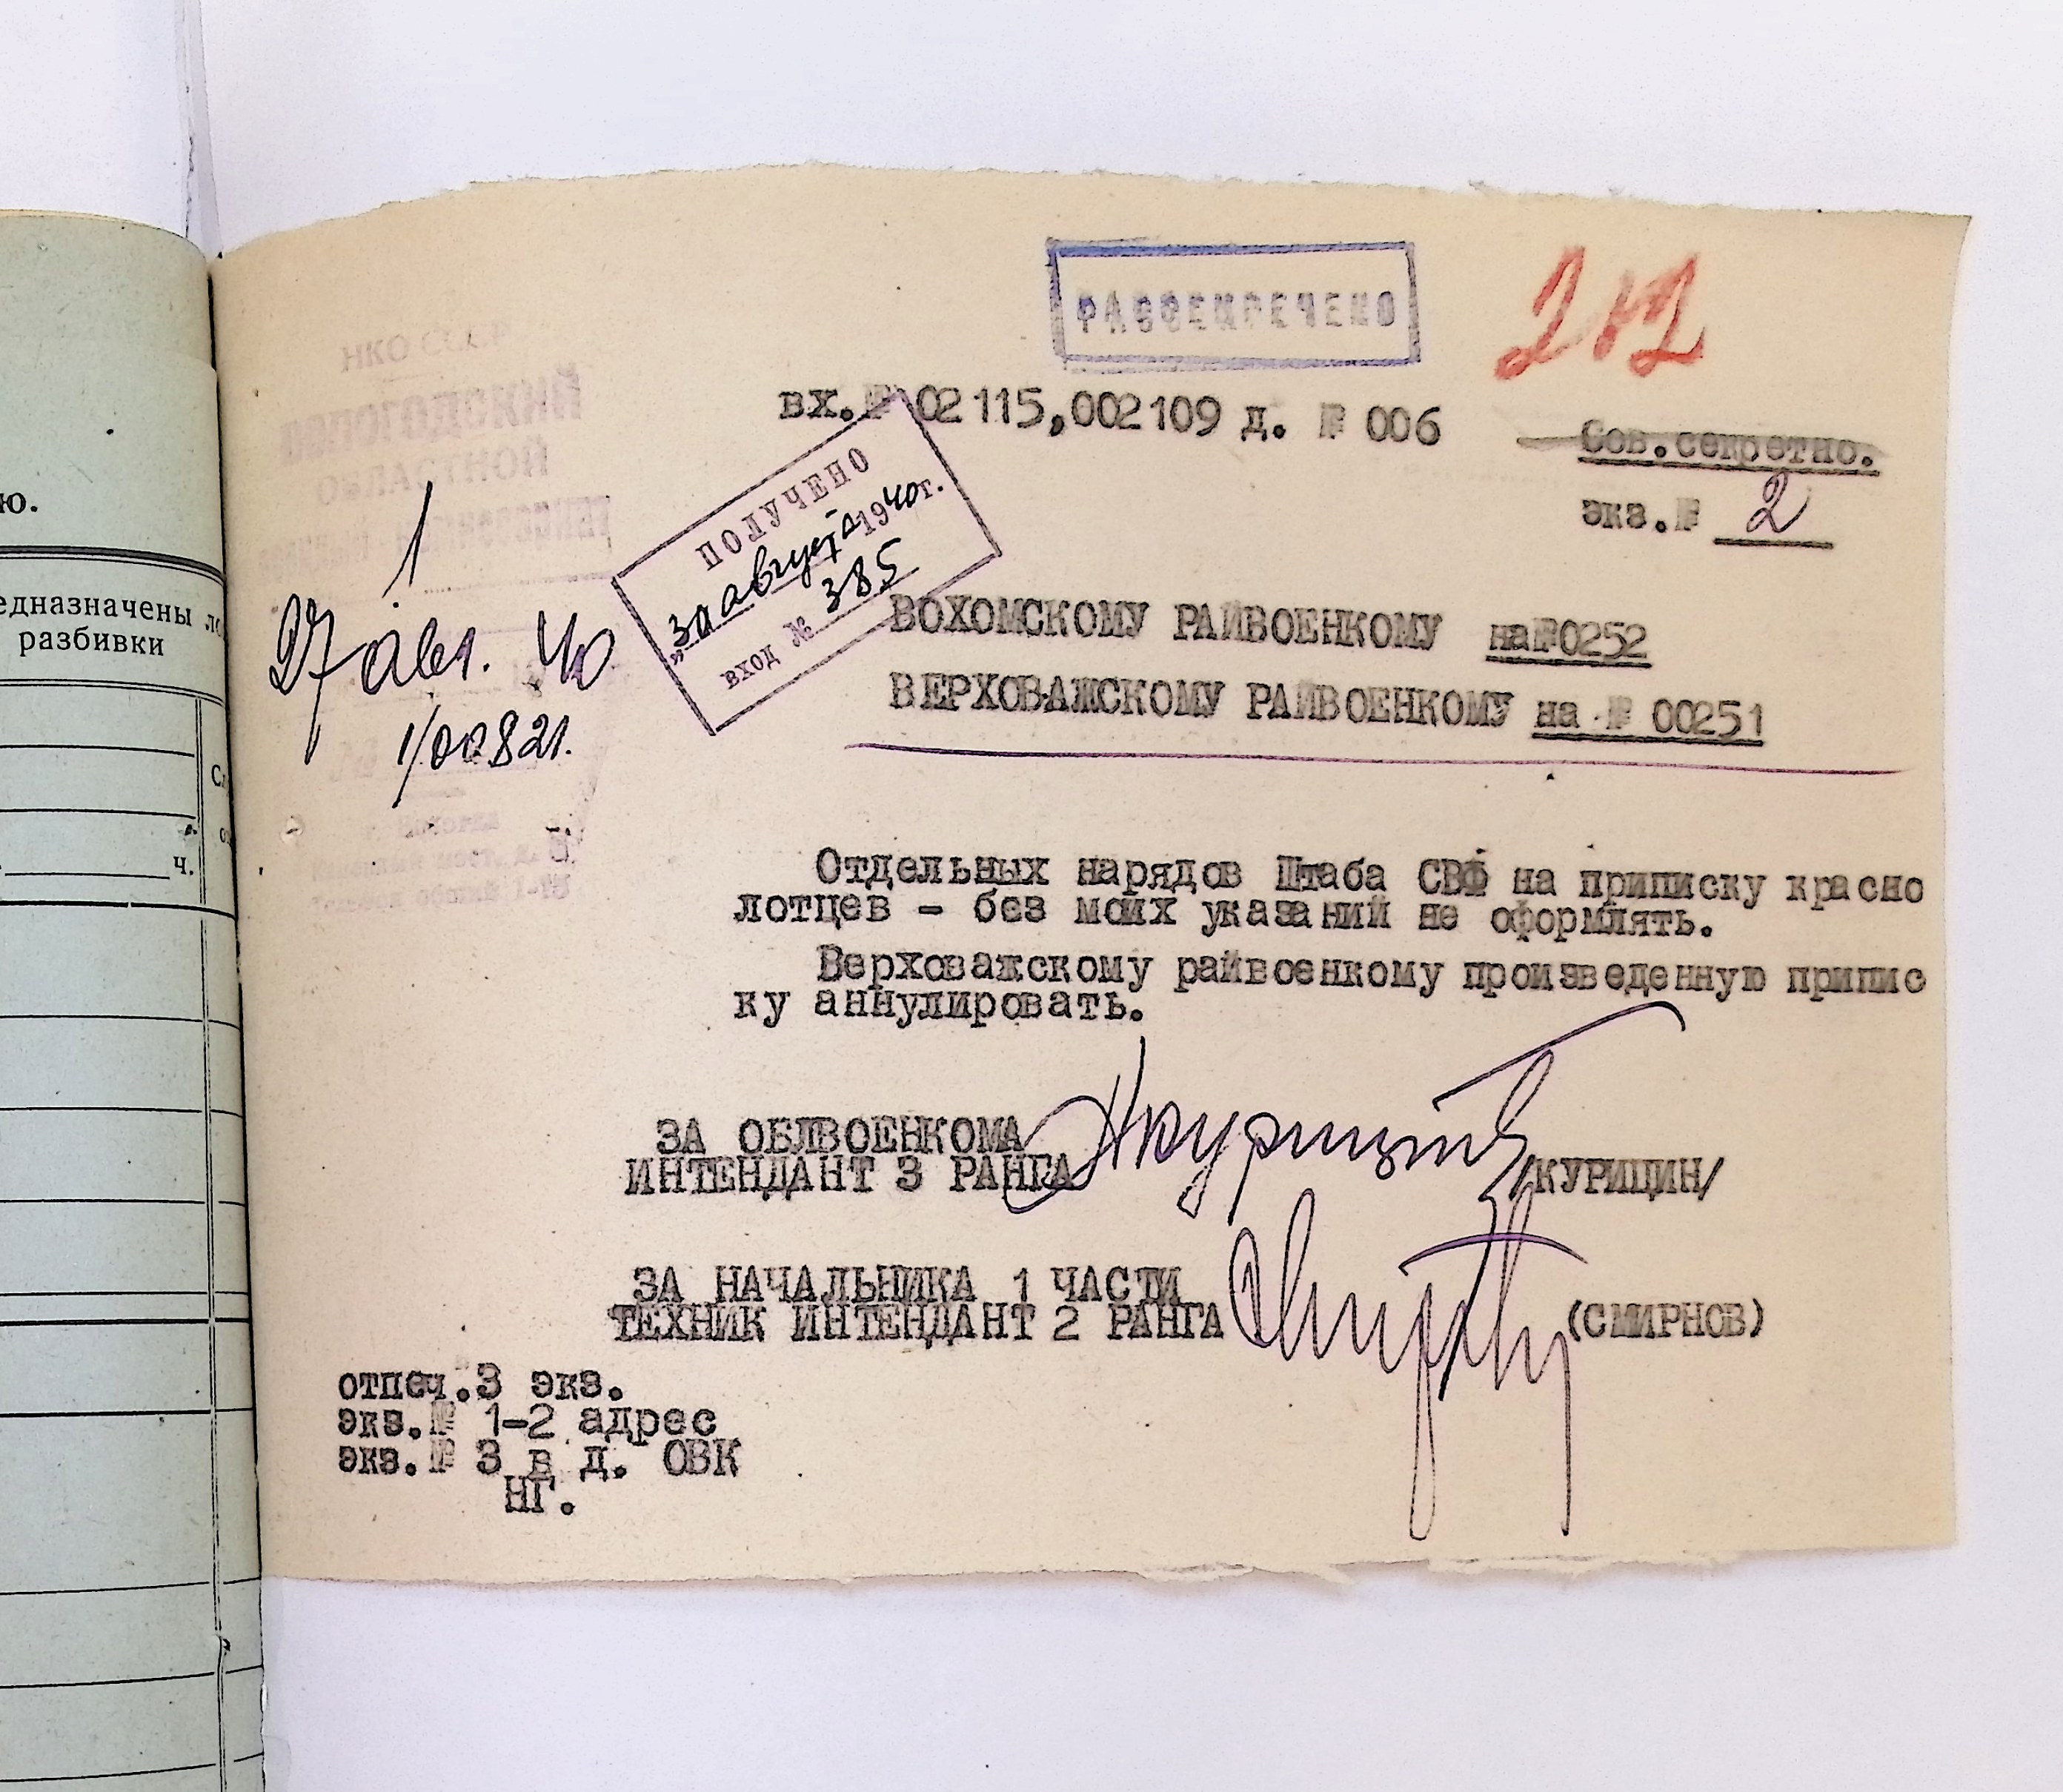 ю.
едназначены
разбивки
ч.
НКО СССР
ВОЛОГОДСКИЙ
ОБЛАСТНОЙ
1
27 авг. 40
1/00821.
РАССЕКРЕЧЕНО
212
вх.№ 02115,002109 д. № 006
Сов.секретно.
экз.№ 2
ПОЛУЧЕНО
„30 августа 1940г.
ВХОД № 385
ВОХОМСКОМУ РАЙВОЕНКОМУ на№0252
ВЕРХОВАЖСКОМУ РАЙВОЕНКОМУ на № 00251
Отдельных нарядов Штаба СВФ на приписку красно
лотцев - без моих указаний не оформлять.
Верховажскому райвоенкому произведенную припис
ку аннулировать.
ЗА ОБЛВОЕНКОМА
ИНТЕНДАНТ 3 РАНГА Курицин /КУРИЦИН/
ЗА НАЧАЛЬНИКА 1 ЧАСТИ
ТЕХНИК ИНТЕНДАНТ 2 РАНГА (СМИРНОВ)
отпеч.3 экз.
экз.№ 1-2 адрес
экз.№ 3 в д. ОВК
НГ.